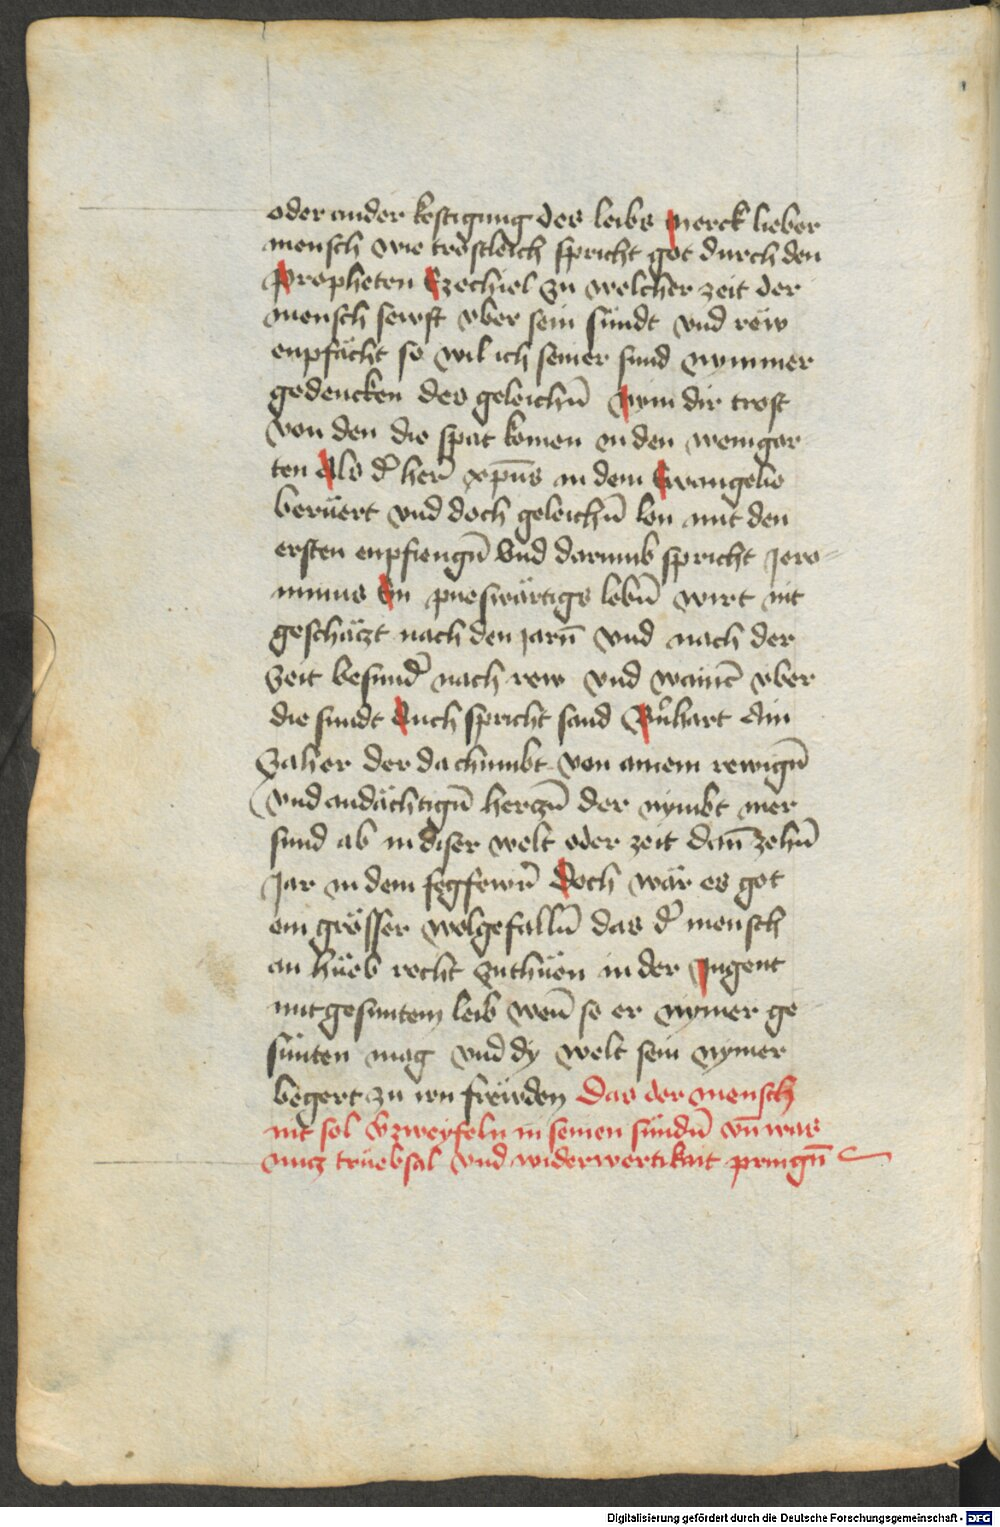 oder ander kestigung des leibs Merck lieber
mensch wie tröstleich spricht got durch den
Propheten Ezechiel zu welcher zeit der
mensch sewft vber sein sündt vnd rëw
enpfächt so wil ich seiner sund nymmer
gedencken des geleichn̄ Nym dir trost
von den die spat komen in den weingar
ten Als d̄ her̄ xp̄us in dem Ewangelio
berüert vnd doch geleichn̄ lon mit den
ersten enpfiengn̄ Vnd darumb spricht Jero=
nimus Ein pueswärtigs lebn̄ wirt nit
geschäzt nach den jarn̄ vnd nach der
zeit besund̄ nach rew vnd wainē vber
die sundt Auch spricht sand Bn̄hart Ain
zaher der da chumbt von ainem rewign̄
vnd andächtign̄ herczn̄ der nymbt mer
sund ab in diser welt oder zeit dan̄ zehn̄
Jar in dem fegfewr̄ Doch wär es got
ein grösser wolgefalln̄ das d̄ mensch
an hüeb recht zuthüen in der Jugent
mit gesuntem leib wen̄ so er nymer ge
sünten mag vnd dy welt sein nymer
begert zu irn frëwden Das der mensch
nit sol verzweyfeln in seinen sündn̄ vn̄ was
nucz trüebsal vnd widerwertikait pringn̄
Digitalisierung gefördert durch die Deutsche Forschungsgemeinschaft - DFG